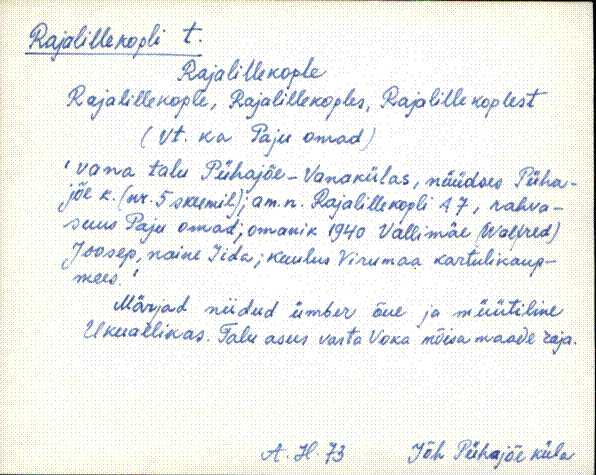 Rajalillekopli t.
Rajalillekople
Rajalillekople, Rajalillekoples, Rajalillekoplest
(Vt. ka Paju omad)
'vana talu Pühajõe-Vanakülas, nüüdses Püha-
jõe k. (nr. 5 skeemil); am. n. Rajalillekopli A7, rahva-
suus Paju omad; omanik 1940 Vallimäe (Walfred)
Joosep, naine Iida; kuulus Virumaa kartulikaup-
mees.'
Märjad niidud ümber õue ja müütiline
Ukuallikas. Talu asus vasta Voka mõisa maade raja.
A. H. 73 Jõh Pühajõe küla